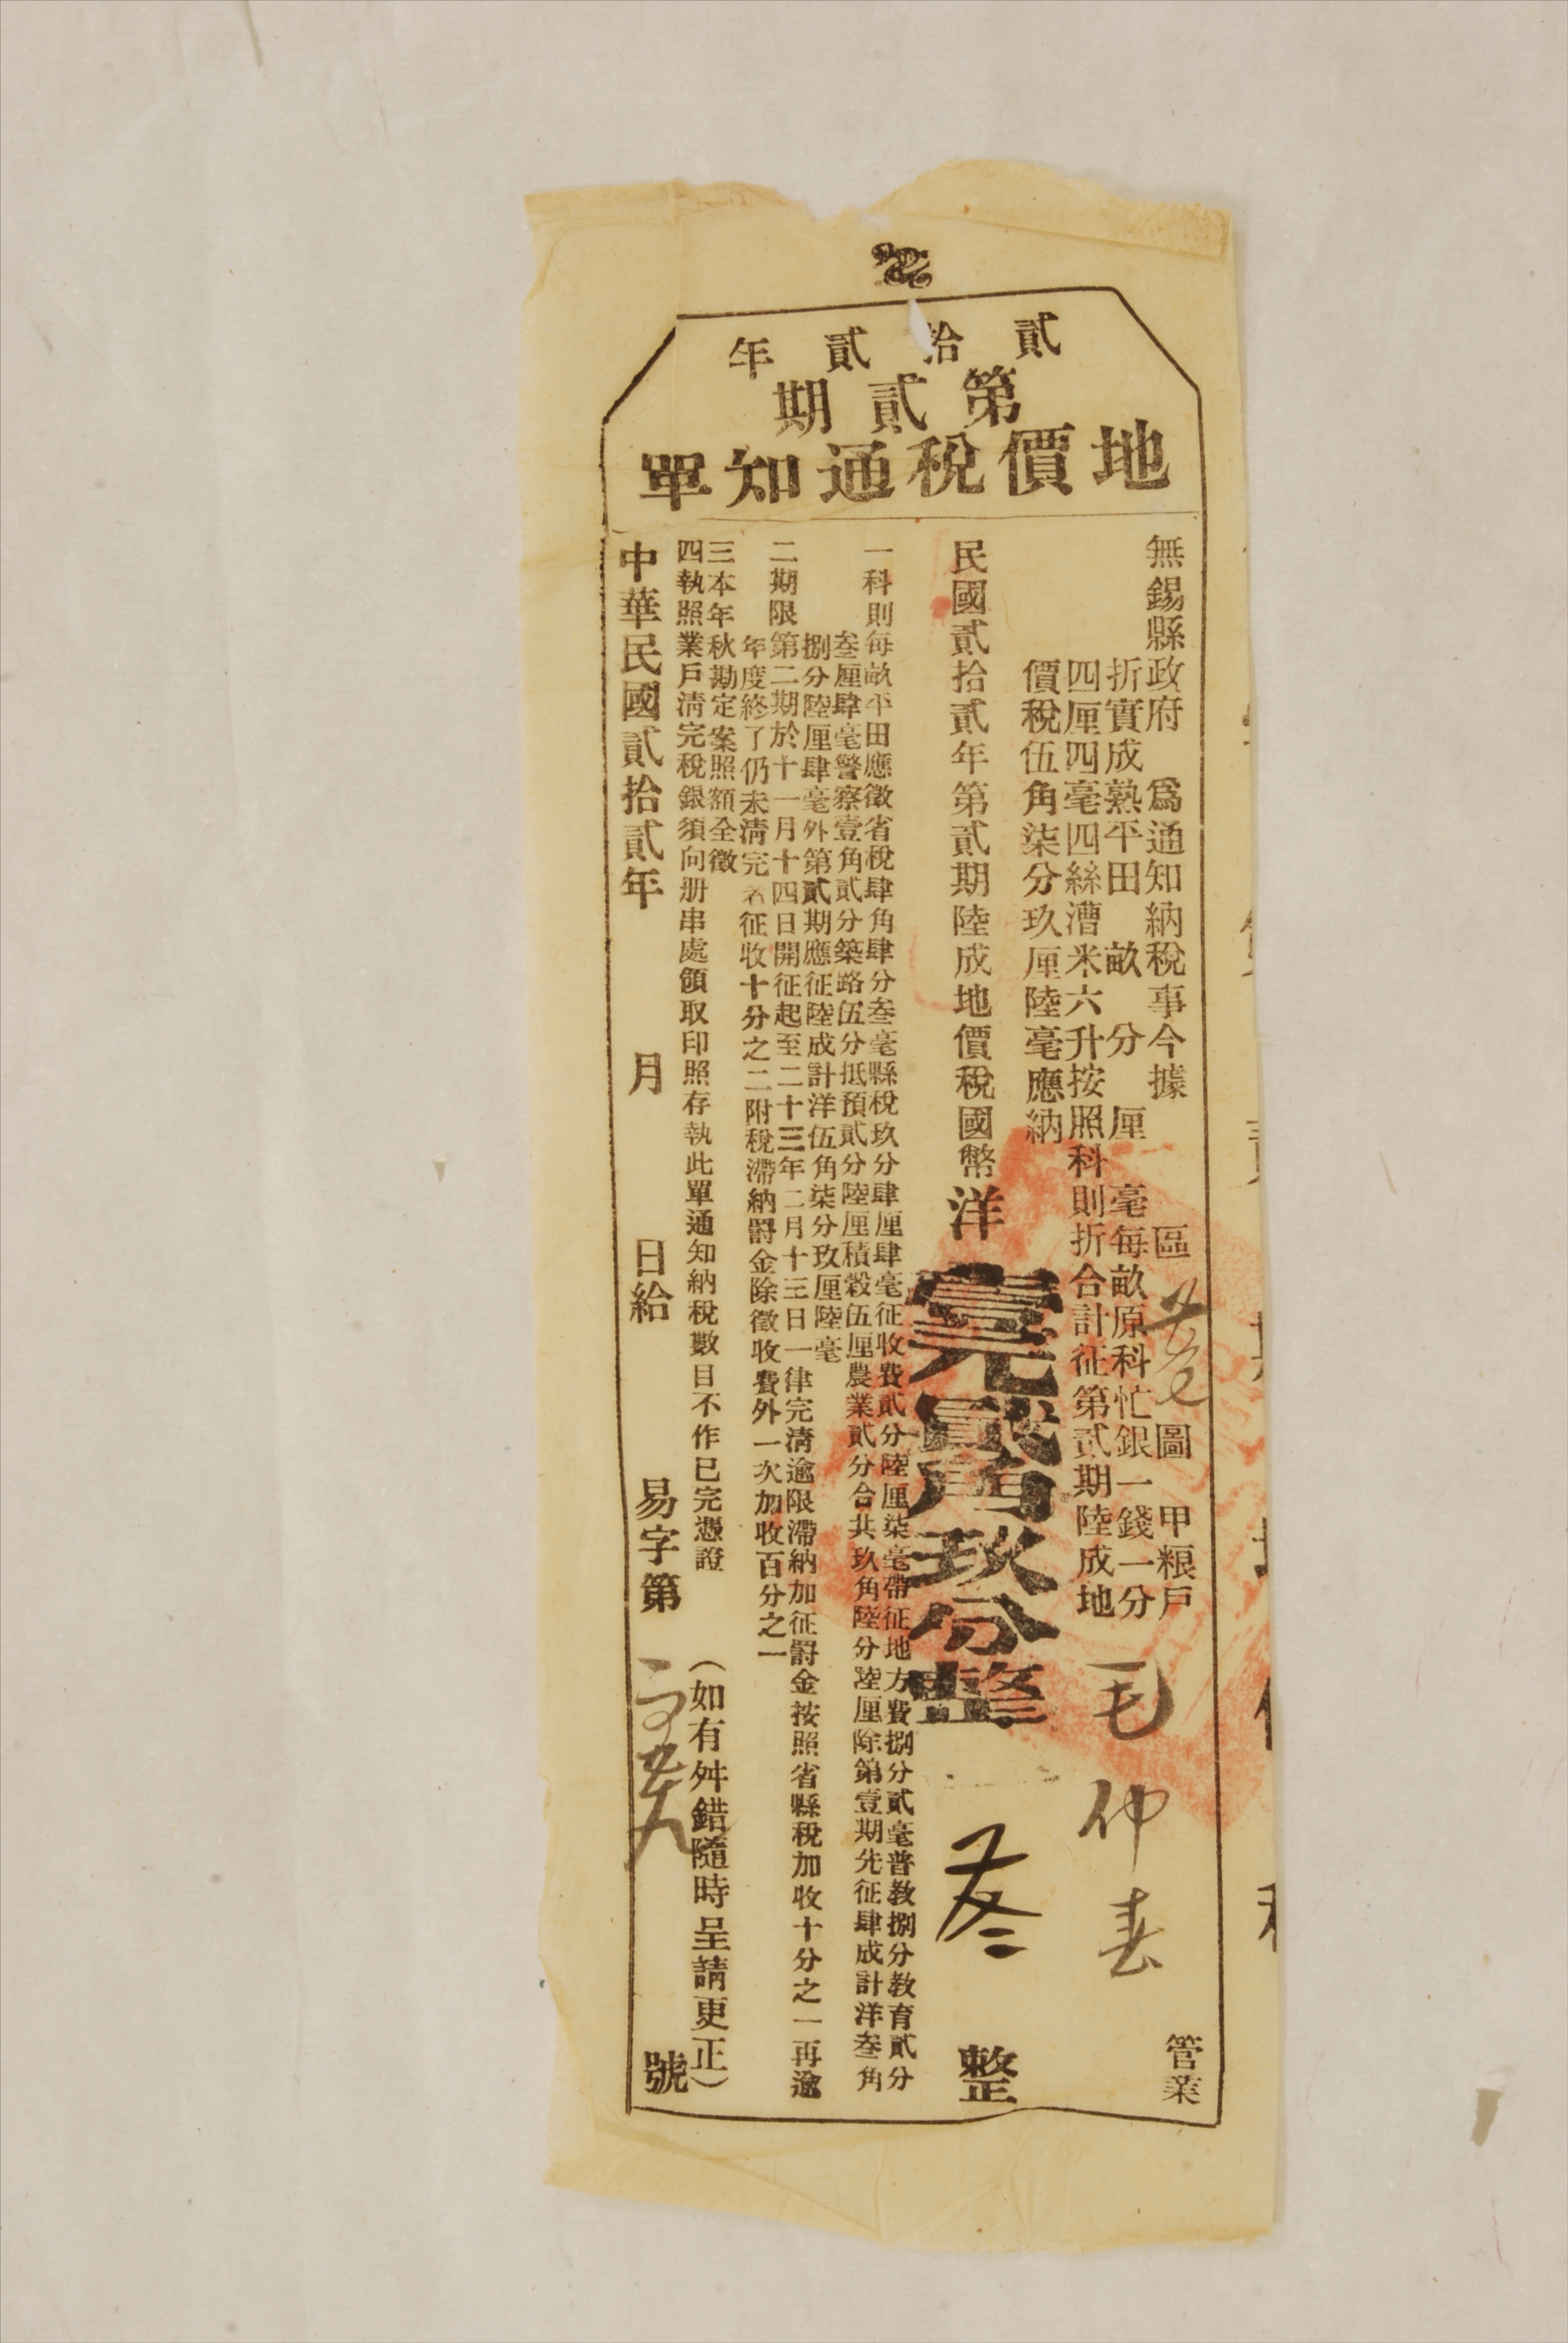 貳拾貳年
第貳期
地價稅通知單
無錫縣政府　爲通知納稅事今據　區　圖　甲粮戶　毛仲春　管業
折實成熟平田　畝　分　厘　毫每畝原科忙銀一錢一分
四厘四毫四絲漕米六升按照科則折合計征第貳期陸成地
價稅伍角柒分玖厘陸毫應納
民國貳拾貳年第貳期陸成地價稅國幣洋壹元貳角玖分整　整
一科則每畝平田應徵省稅肆角肆分叁毫縣稅玖分肆厘肆毫征收費貳分陸厘柒毫帶征地方費捌分貳毫普教捌分教育貳分
叁厘肆毫警察壹角貳分築路伍分抵預貳分陸厘積穀伍厘農業貳分合共玖角陸分陸厘除第壹期先征肆成計洋叁角
捌分陸厘肆毫外第貳期應征陸成計洋伍角柒分玖厘陸毫
二期限第二期於十一月十四日開征起至二十三年二月十三日一律完清逾限滯納加征罰金按照省縣稅加收十分之一再逾
年度終了仍未清完者征收十分之二附稅滯納罰金除徵收費外一次加收百分之一
三本年秋勘定案照額全徵
四執照業戶清完稅銀須向册串處領取印照存執此單通知納稅數目不作已完憑證
（如有舛錯隨時呈請更正）
中華民國貳拾貳年　月　日給　易字第　號